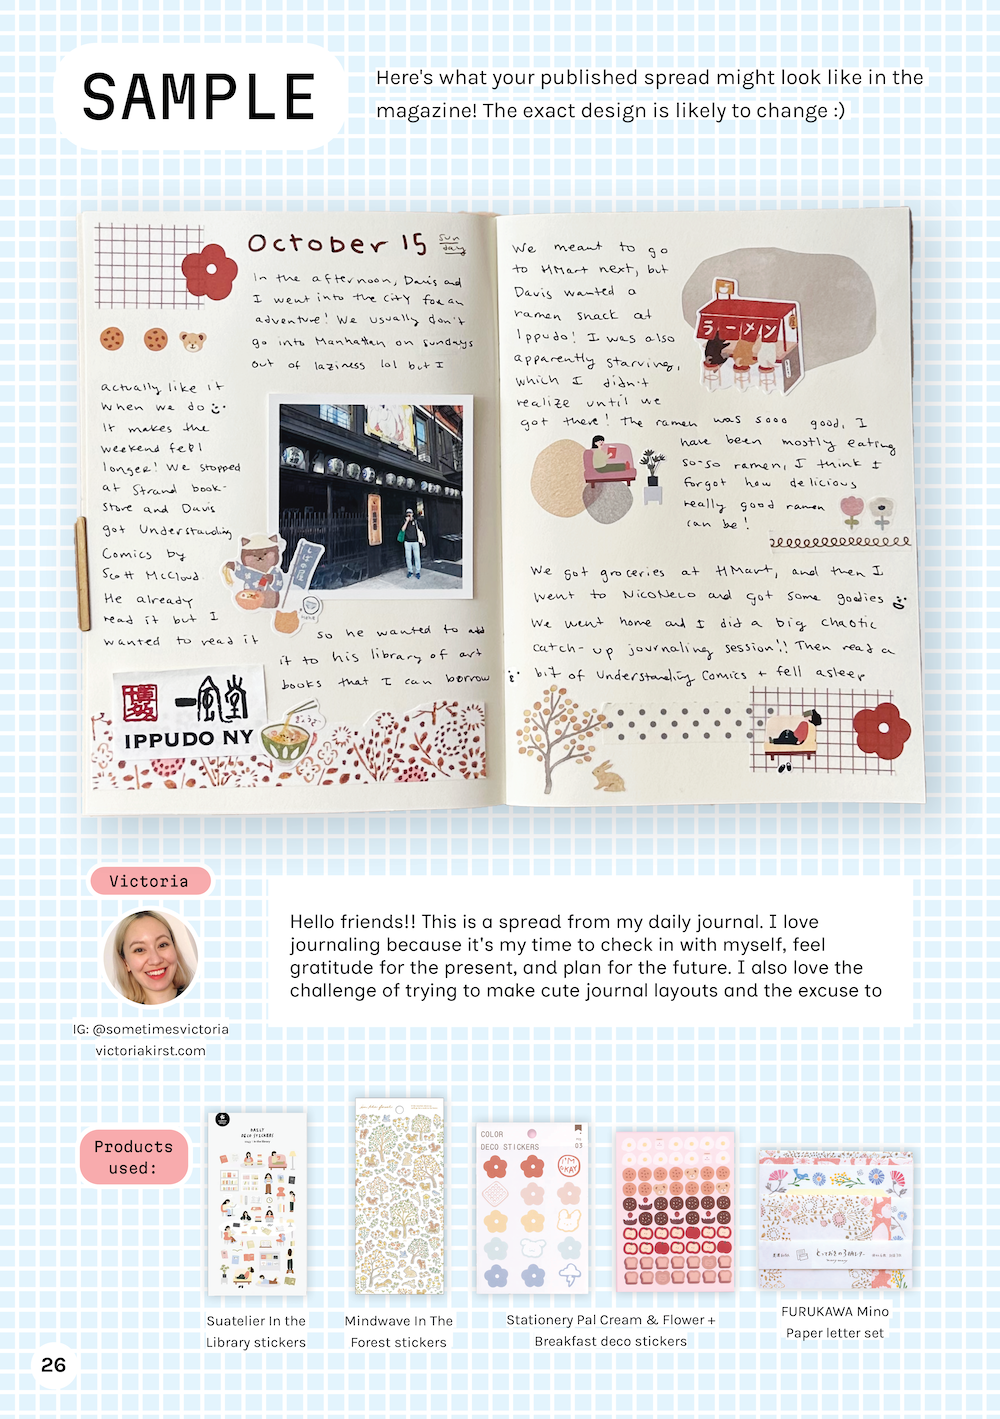 SAMPLE
Here's what your published spread might look like in the
magazine! The exact design is likely to change :)
October 15
Sunday
In the afternoon, Davis and
I went into the city for an
adventure! We usually don't
go into Manhattan on Sundays
out of laziness lol but I
actually like it
when we do
It makes the
weekend feel
longer! We stopped
at Strand book-
store and Davis
got Understanding
Comics by
Scott McCloud.
He already
read it but I
wanted to read it
so he wanted to add
it to his library of art
books that I can borrow
一風堂
IPPUDO NY
We meant to go
to HMart next, but
Davis wanted a
ramen snack at
Ippudo! I was also
apparently starving,
which I didn't
realize until we
got there! The ramen was sooo good, I
have been mostly eating
so-so ramen, I think I
forgot how delicious
really good ramen
can be!
ラーメン
We got groceries at HMart, and then I
went to NicoNeco and got some goodies
We went home and I did a big chaotic
catch-up journaling session!! Then read a
bit of Understanding Comics + fell asleep
Victoria
IG: @sometimesvictoria
victoriakirst.com
Hello friends!! This is a spread from my daily journal. I love
journaling because it's my time to check in with myself, feel
gratitude for the present, and plan for the future. I also love the
challenge of trying to make cute journal layouts and the excuse to
Products
used:
DAILY
DECO STICKERS
COLOR
DECO STICKERS
03
I'M
OKAY
Suatelier In the
Library stickers
Mindwave In The
Forest stickers
Stationery Pal Cream & Flower +
Breakfast deco stickers
FURUKAWA Mino
Paper letter set
26